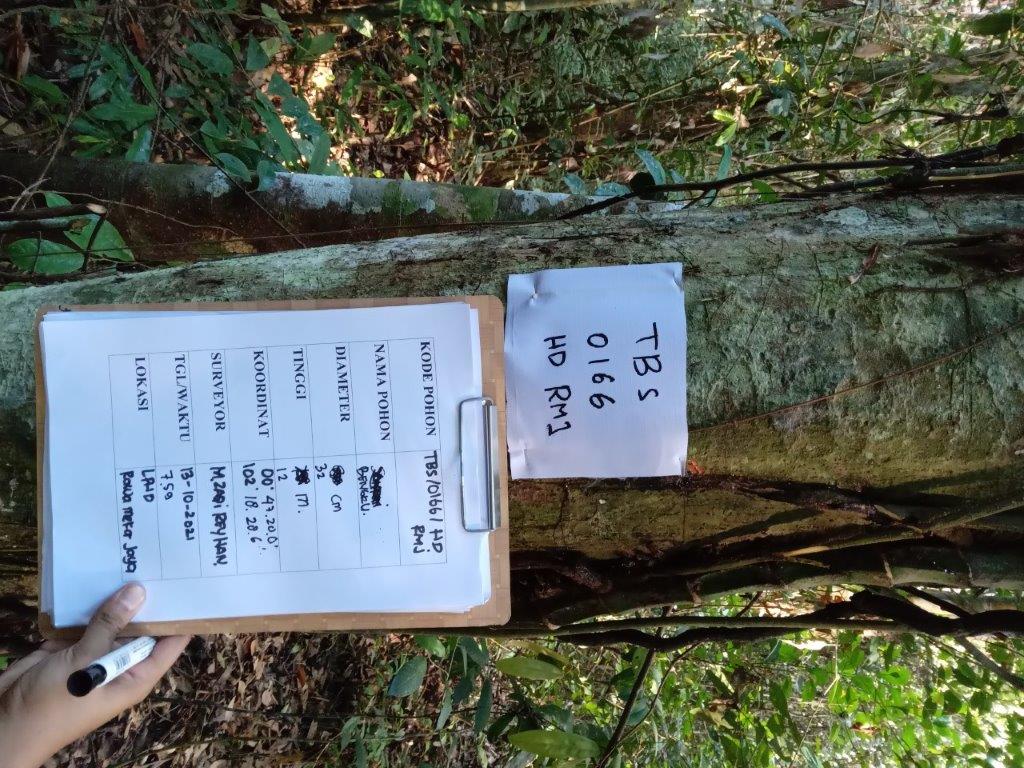 TBS
0166
HD RMJ
KODE POHON TBS/0166/HD
RMJ
NAMA POHON
DIAMETER 32 CM
TINGGI M.
12
KOORDINAT 00° 47. 20.0"
102 18. 28.6"
SURVEYOR RAYHAN
TGL/WAKTU 13-10-2021
759
LOKASI
Jaya